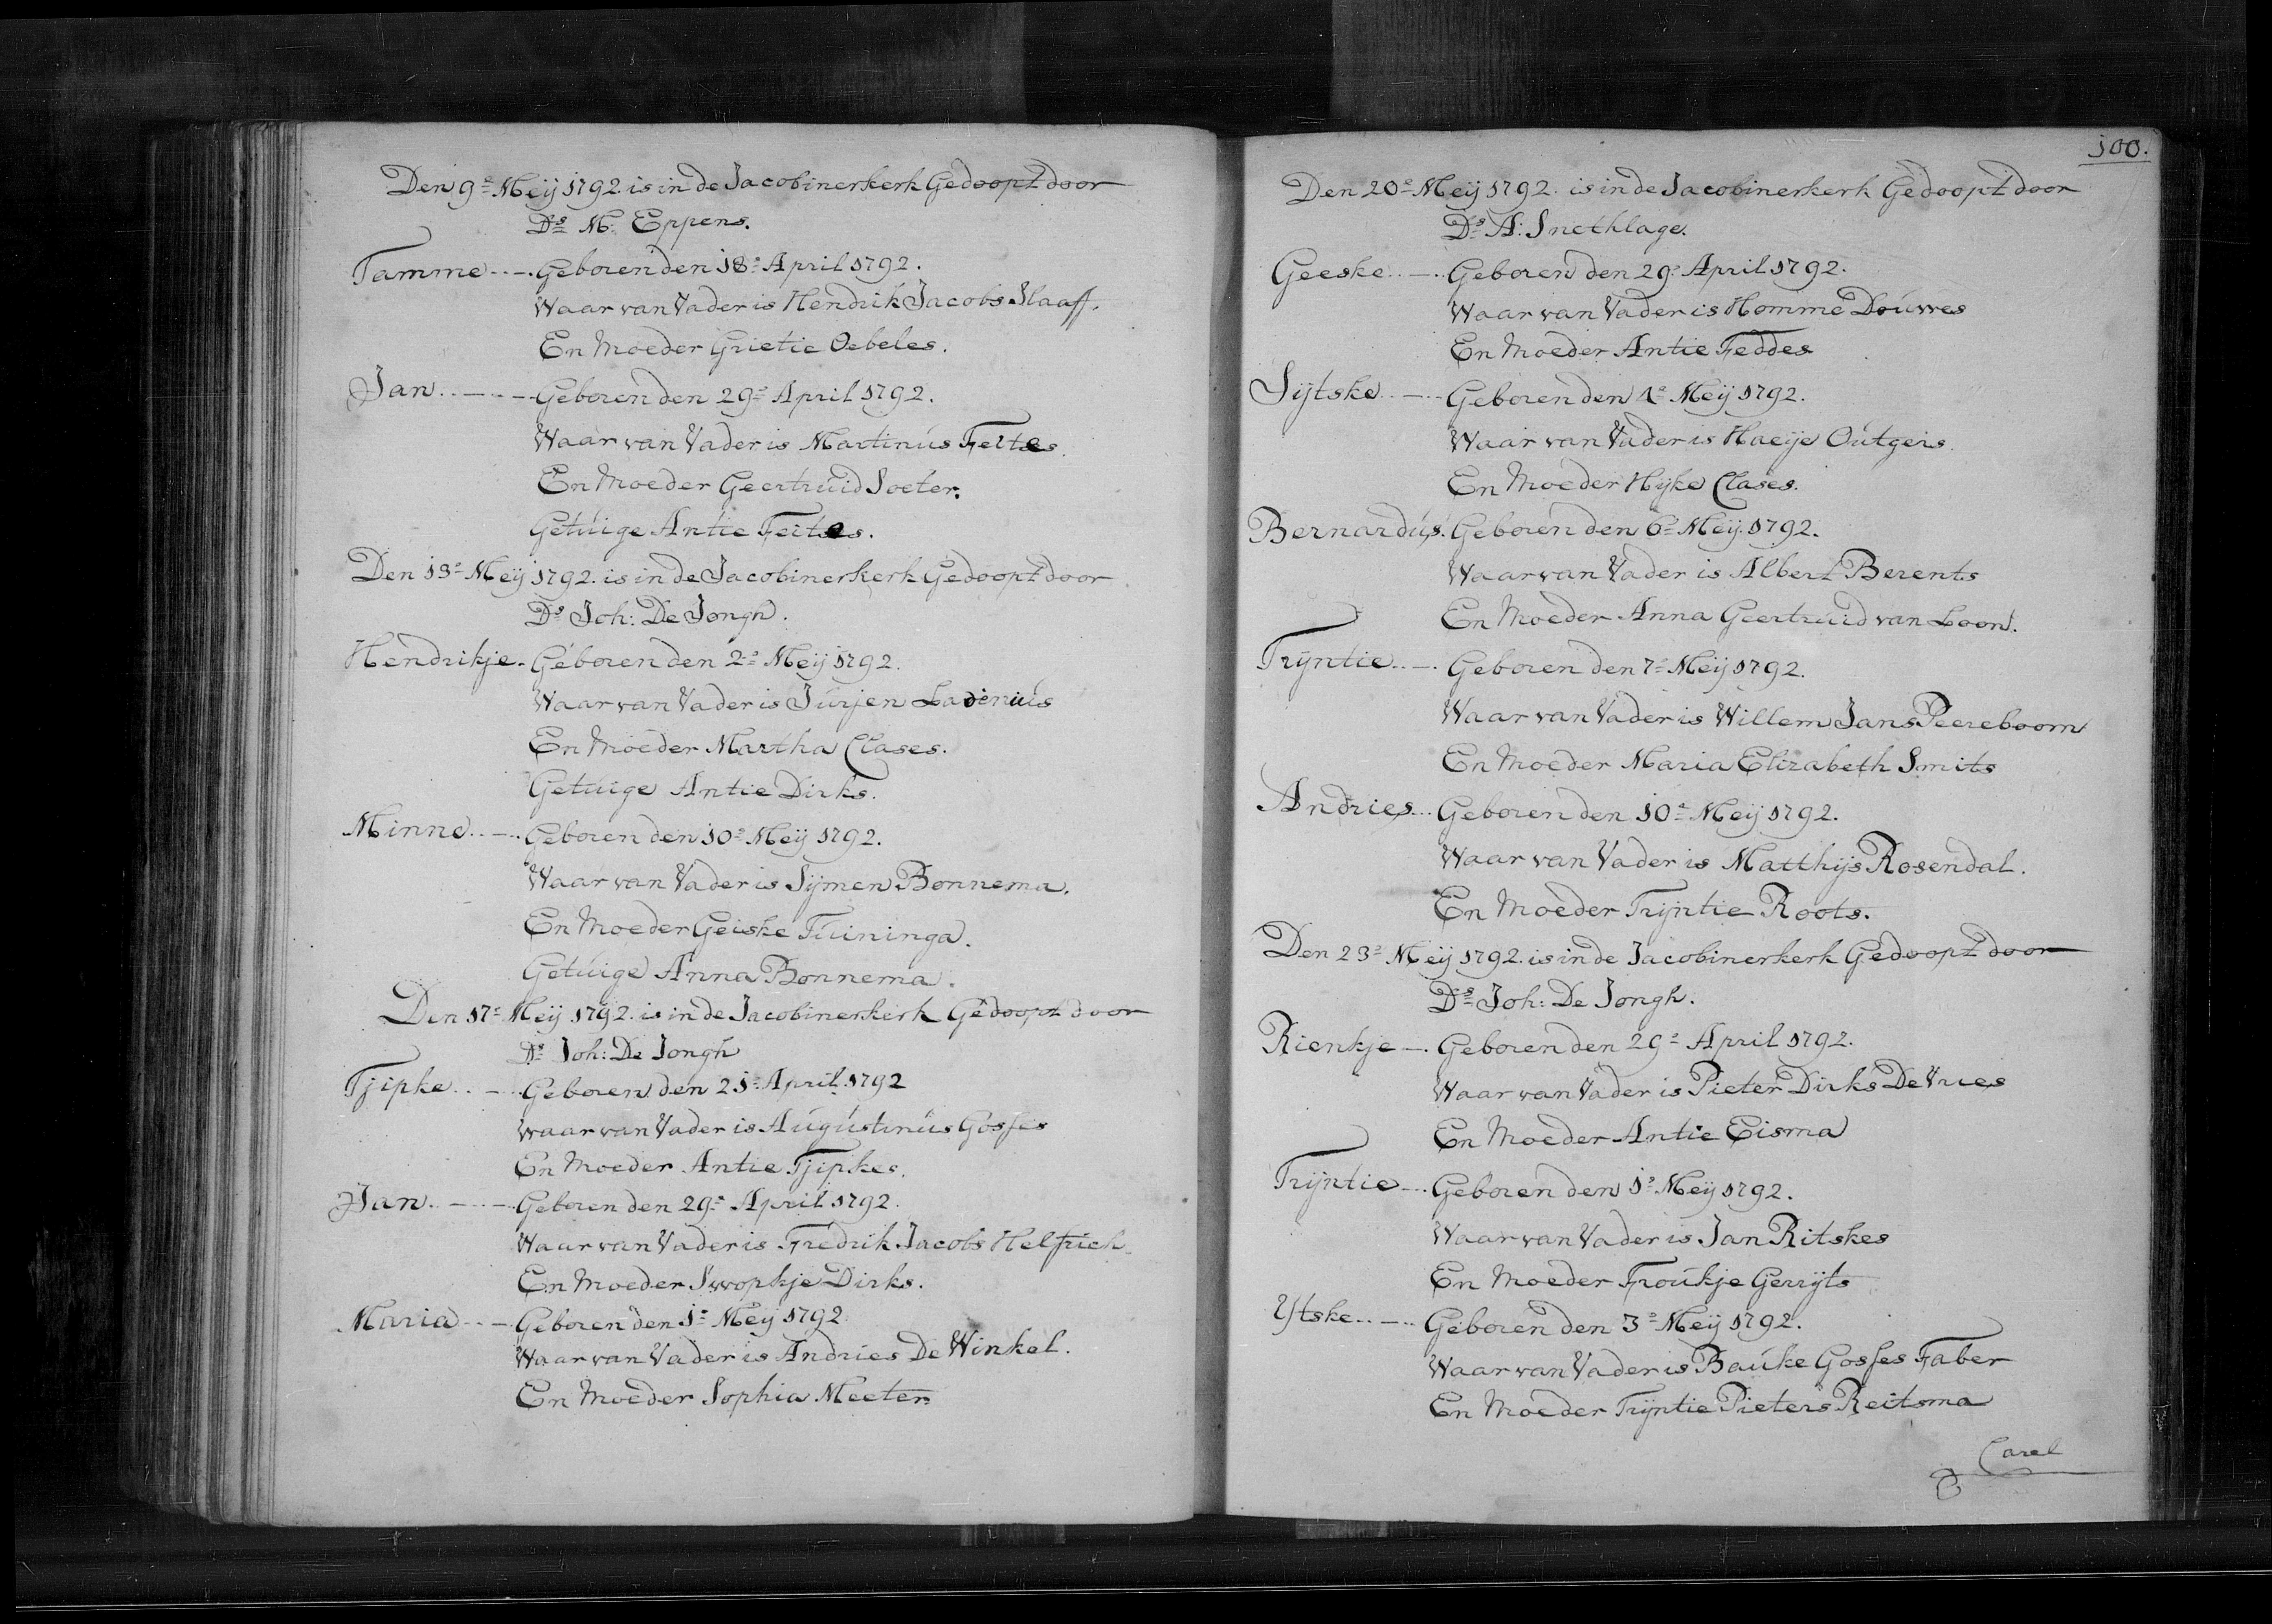 Den 9e Meij 1792. is in de Jacobinerkerk Gedoopt door
Ds M: Eppens.
Tamme Geboren den 18e April 1792.
Waar van Vader is Hendrik Jacobs Slaaff.
En Moeder Grietie Oebeles.
Jan Geboren den 29e April 1792.
Waar van Vader is Martinus Feites.
En Moeder Geertruid Soeter.
Getuige Antie Feites.
Den 13e Meij 1792. is in de Jacobinerkerk Gedoopt door
Ds Joh: De Jongh.
Hendrikje. Geboren den 2e Meij 1792.
Waar van Vader is Jurjen Ladenius
En Moeder Martha Clases.
Getuige Antie Dirks.
Minne Geboren den 10e Meij 1792.
Waar van Vader is Sijmen Bonnema.
En Moeder Geiske Tuininga.
Getuige Anna Bonnema.
Den 17e Meij 1792. is in de Jacobinerkerk Gedoopt door
Ds Joh: De Jongh
Tjipke Geboren den 21e April 1792
waar van Vader is Augustinus Gosses
En Moeder Antie Tjipkes.
Jan Geboren den 29e April 1792.
Waar van Vader is Fredrik Jacobs Helfrich.
En Moeder Swopkje Dirks.
Maria Geboren den 1e Meij 1792
Waar van Vader is Andries De Winkel.
En Moeder Sophia Meeter.
100.
Den 20e Meij 1792. is in de Jacobinerkerk Gedoopt door
Ds A: Snethlage.
Geeske Geboren den 29e April 1792.
Waar van Vader is Homme Douwes
En Moeder Antie Feddes
Sijtske Geboren den 4e Meij 1792.
Waar van Vader is Haeije Outgers.
En Moeder Hijke Clases.
Bernardus. Geboren den 6e Meij 1792.
Waar van Vader is Albert Berents
En Moeder Anna Geertruid van Loon.
Trijntie Geboren den 7e Meij 1792.
Waar van Vader is Willem Jans Peereboom
En Moeder Maria Elizabeth Smits
Andries Geboren den 10e Meij 1792.
Waar van Vader is Matthijs Rosendal.
En Moeder Trijntie Roots.
Den 23e Meij 1792. is in de Jacobinerkerk Gedoopt door
Ds Joh: De Jongh.
Rienkje Geboren den 29e April 1792.
Waar van Vader is Pieter Dirks De Vries
En Moeder Antie Eisma
Trijntie Geboren den 1e Meij 1792.
Waar van Vader is Jan Ritskes
En Moeder Froukje Gerrijts
Ytske Geboren den 3e Meij 1792.
Waar van Vader is Bauke Gosses Faber
En Moeder Trijntie Pieters Reitsma
Carel